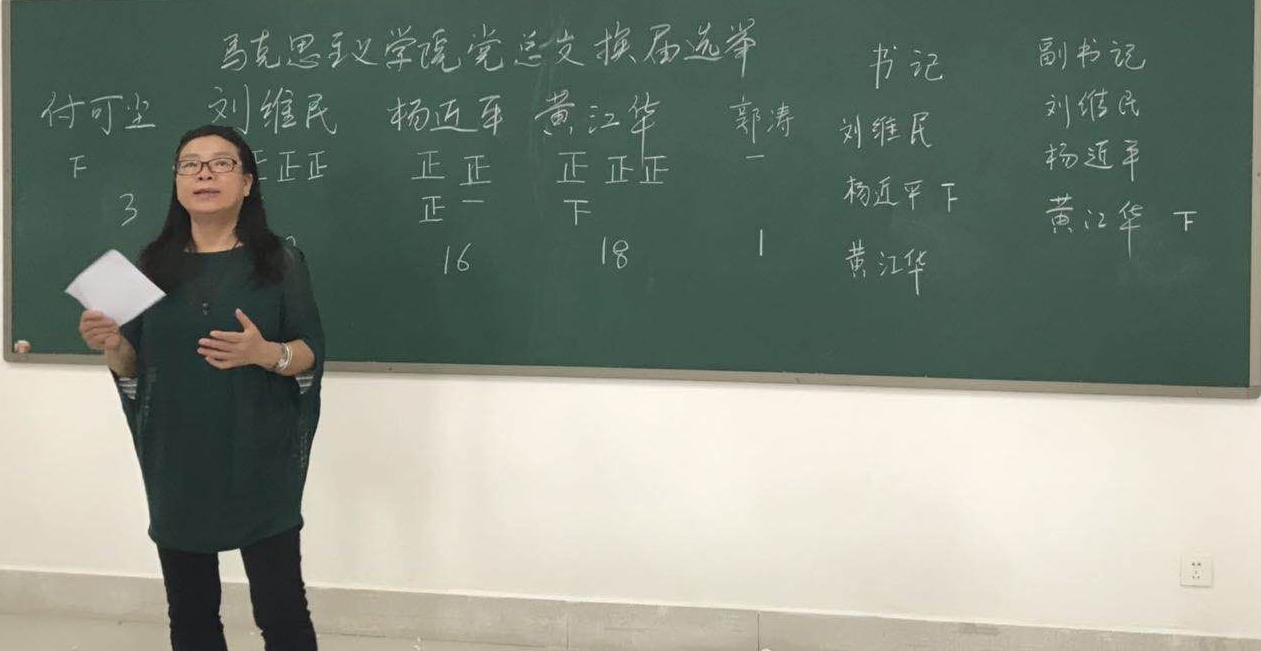 马克思主义学院党总支换届选举
付可尘 刘维民 杨近平 黄江华 郭涛
下 正正 正正 正正正 一
正一 下
3 16 18 1
书记
刘维民
杨近平 下
黄江华
副书记
刘维民
杨近平
黄江华 下